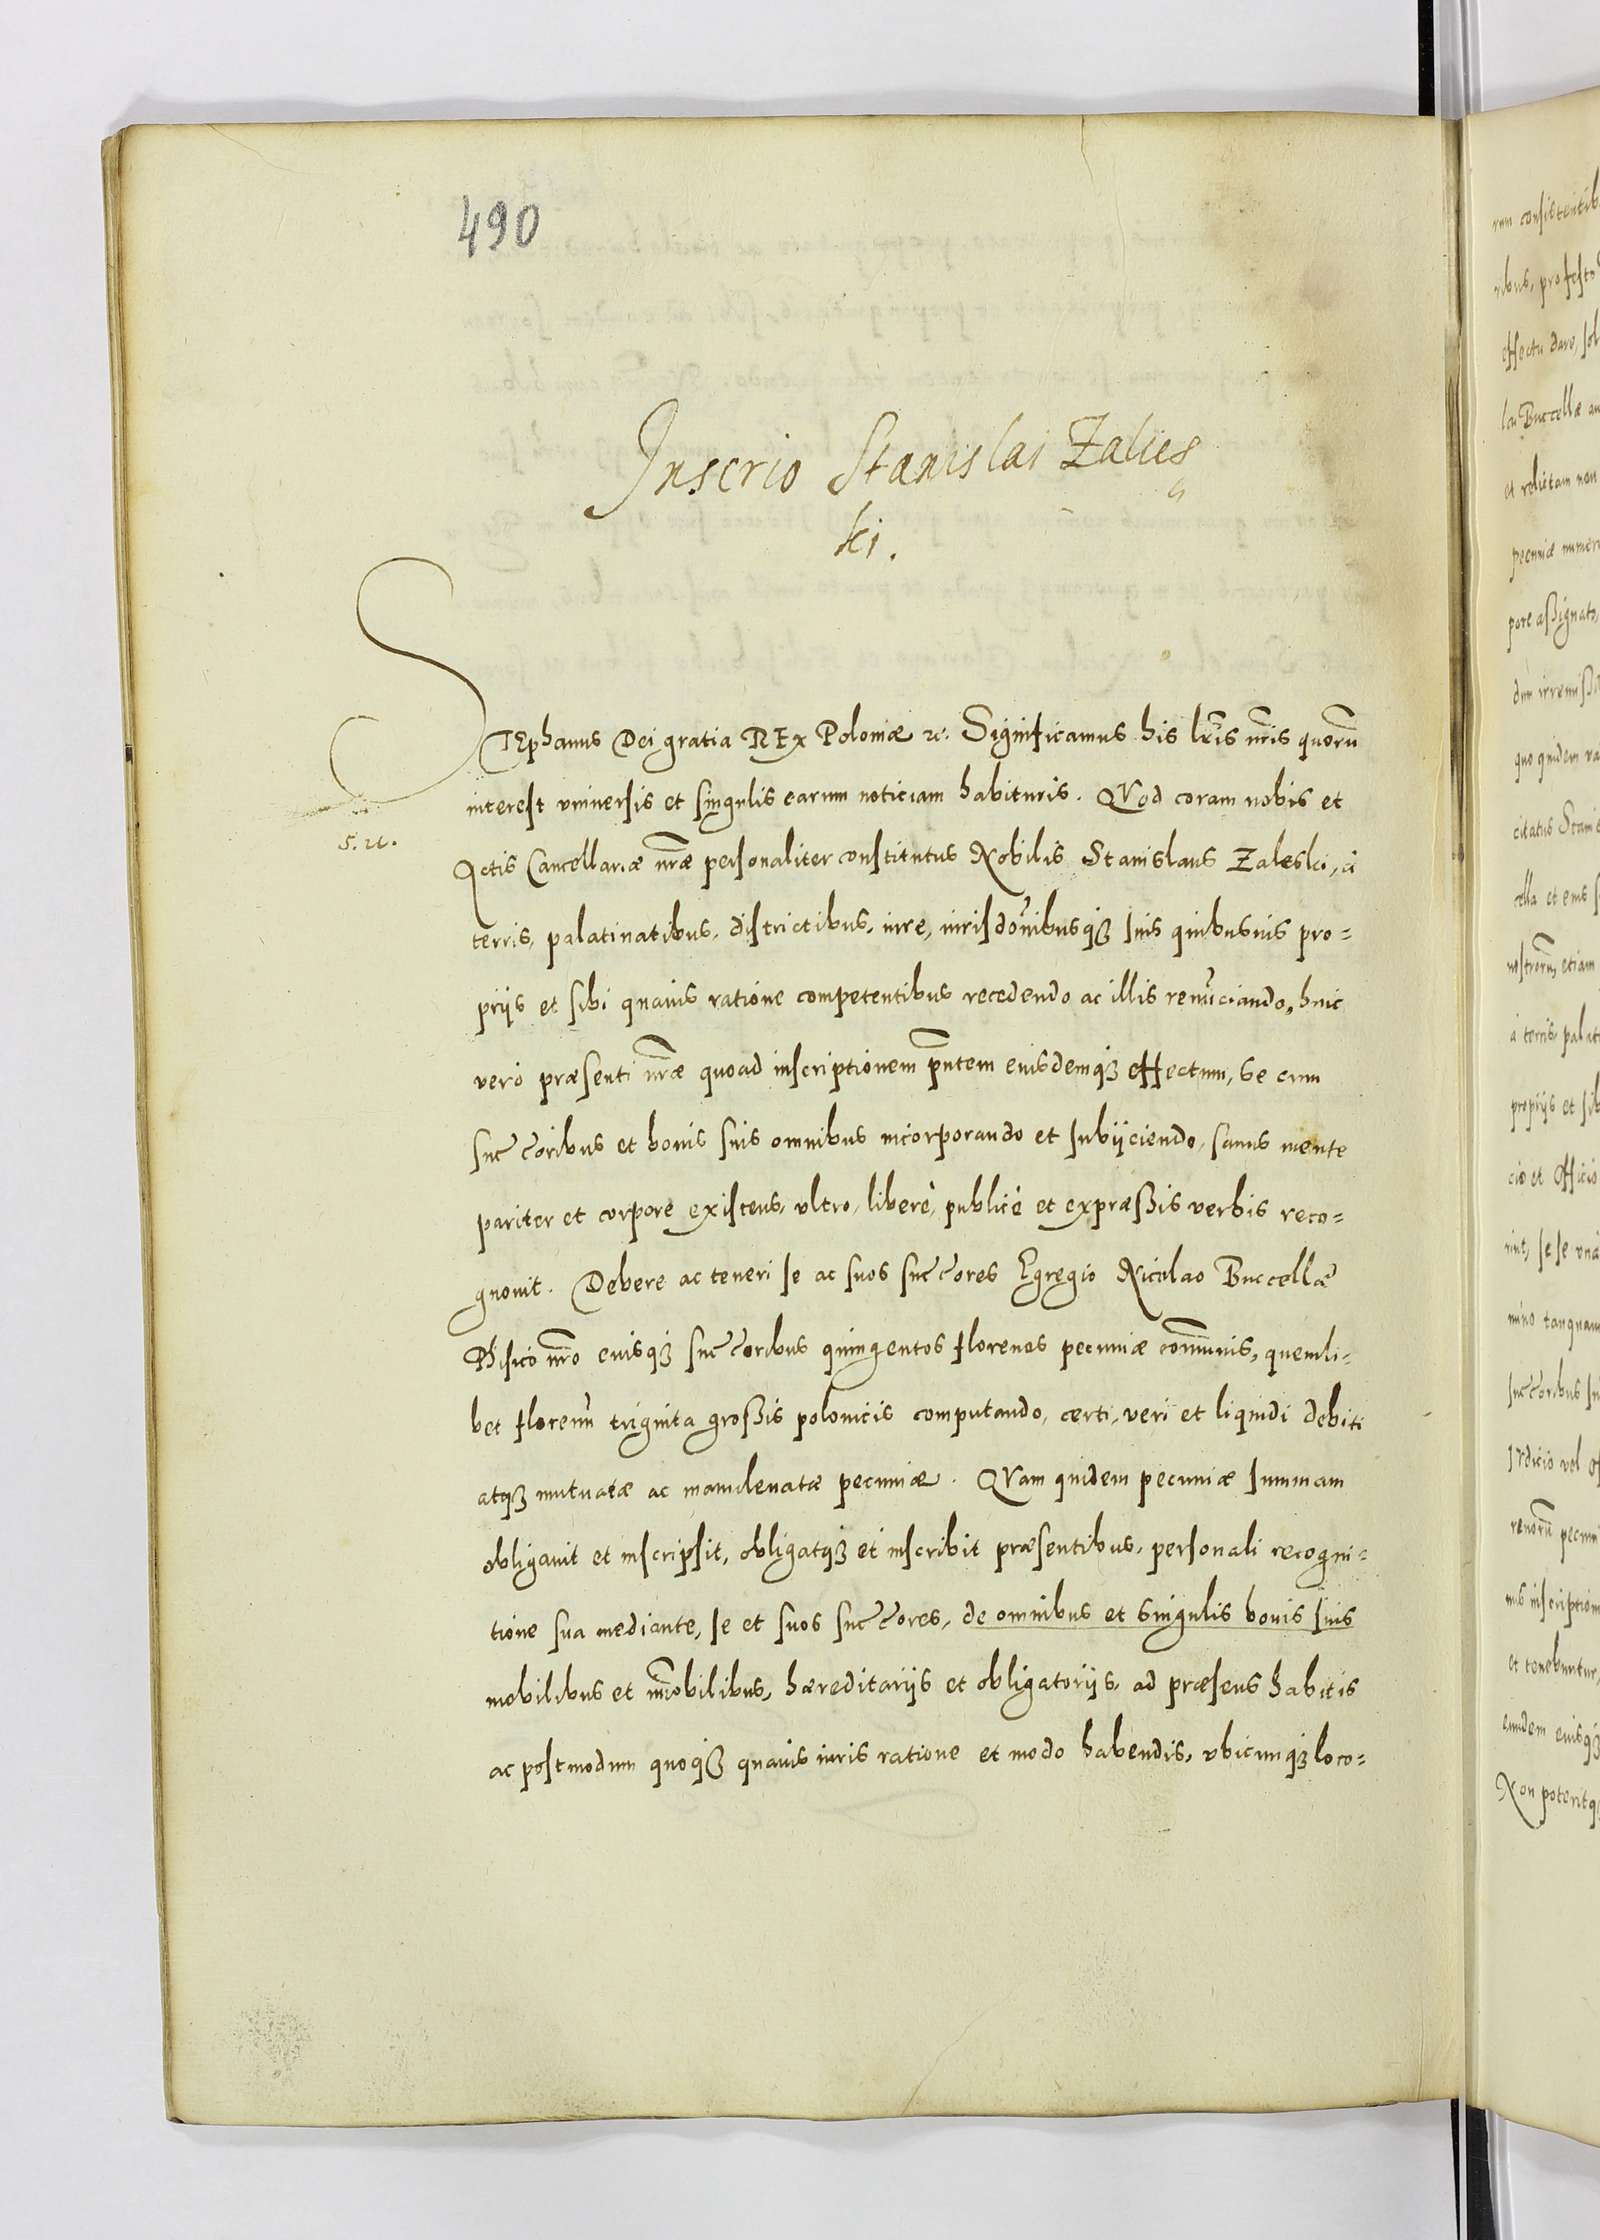 490
Inscrio Stanislai Zalies
ki.
STEphanus Dei gratia REx Poloniæ &c. Significamus his lr̃is nr̃is quorũ
interest vniuersis et singulis earum noticiam habituris. QVod coram nobis et
Actis Cancellariæ nr̃æ personaliter constitutus Nobilis Stanislaus Zaleski, à
terris, palatinatibus, districtibus, iure, iurisdõnibusqȝ suis quibusuis pro=
prijs et sibi quauis ratione competentibus recedendo ac illis renũciando, huic
verò præsenti nr̃æ quoad inscriptionem pñtem eiusdemqȝ effectum, se cum
succõribus et bonis suis omnibus incorporando et subijciendo, sanus mente
pariter et corpore existens, vltro, liberè, publicè et expræßis verbis reco=
gnouit. Debere ac teneri se ac suos succõres Egregio Nicolao Buccellæ
Phisico nr̃o eiusqȝ succõribus quingentos florenos pecuniæ com̃unis, quemli=
bet florenũ triginta großis polonicis computando, certi, veri et liquidi debiti
atqȝ mutuatæ ac manuleuatæ pecuniæ. QVam quidem pecuniæ summam
obligauit et inscripsit, obligatqȝ et inscribit præsentibus, personali recogni=
tione sua mediante, se et suos succõres, de omnibus et singulis bonis suis
mobilibus et im̃obilibus, hæreditarijs et obligatorijs, ad præsens habitis
ac postmodum quoqȝ quauis iuris ratione et modo habendis, vbicunqȝ loco=
rum consistentib
ribus, profesto
effectu dare, sol
lao Buccellæ au
et relictam non
pecuniæ numer
pore aßignato,
quo quidem ra
citatus Stani
cella et eius s
nostrorũ, etiam
à terris, palat
proprijs et sib
cio et officio
rint, se se vna
mino tanquam
succõribus su
IVdicio vel of
renorũ pecuni
et tenebuntur,
eundem eiusqȝ
Non poteritqȝ